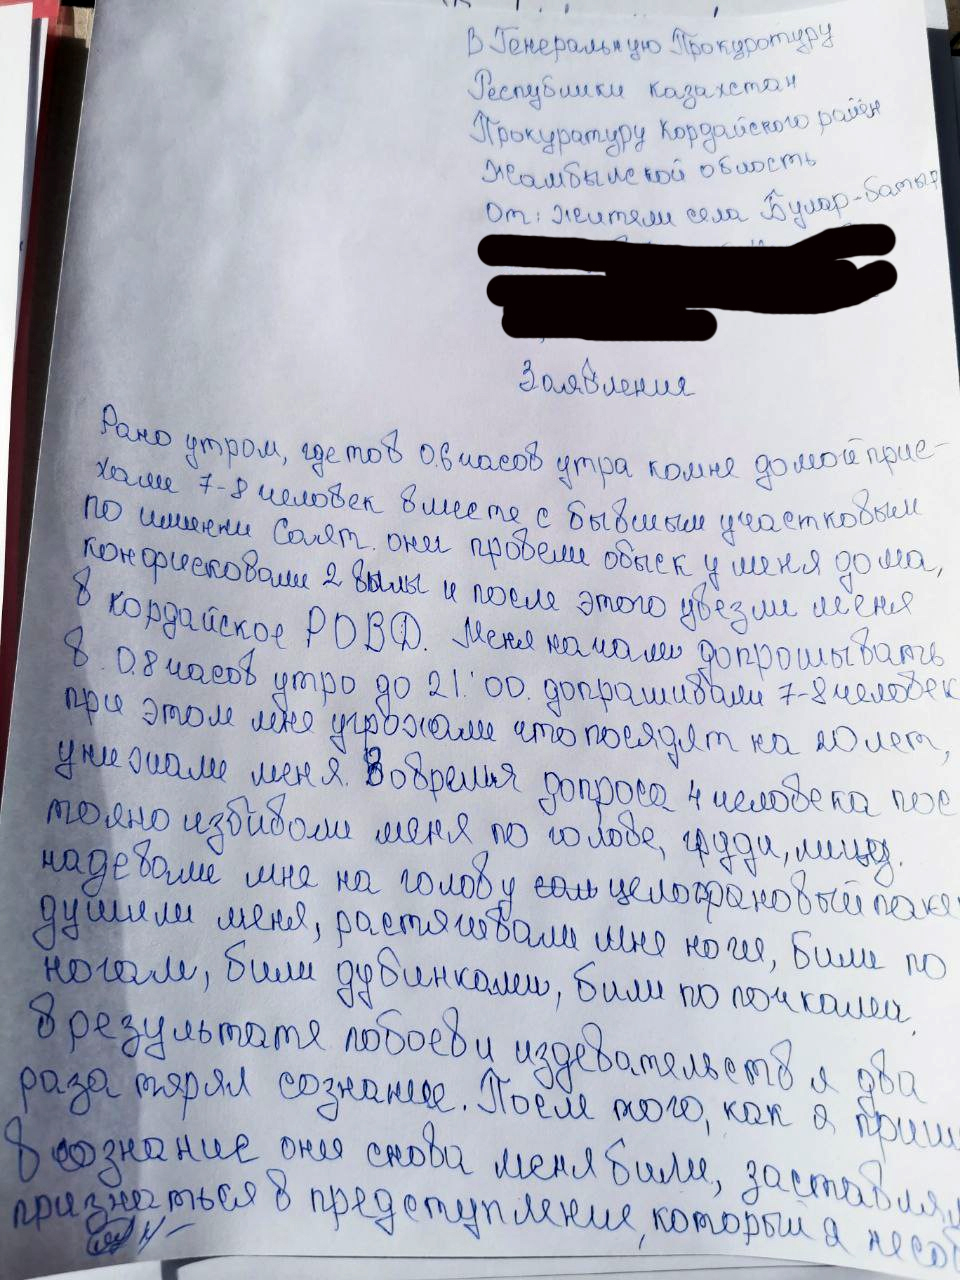 В Генеральную Прокуротуру
Республики казахстан
Прокуратуру Кордайского район
Жамбылской область
от: жители села Булар-батыр
Заявления
Рано утром, где тов 0.6 часов утра ко мне домой прие-
хали 7-8 человек вместе с бывшым участковым
по имени Саят. они провели обыск у меня дома,
конфисковали 2 вилы и после этого увезли меня
в кордайское РОВД. Меня начали допрошывать
в 0.8 часов утро до 21:00. допрашивали 7-8 человек
при этом мне угрожали что посядят на 20 лет,
унижали меня. Вовремя допроса 4 человека пос
тояно избивали меня по голове, груди, лицу.
надевали мне на голову целофановый паке
душили меня, растягивали мне ноги, били по
ногам, били дубинками, били по почками,
в результате побоев и издевательств я два
раза тярял сознание. После того, как я приш
в сознание они снова меня били, заставлял
признаться в предступление, который я не сов